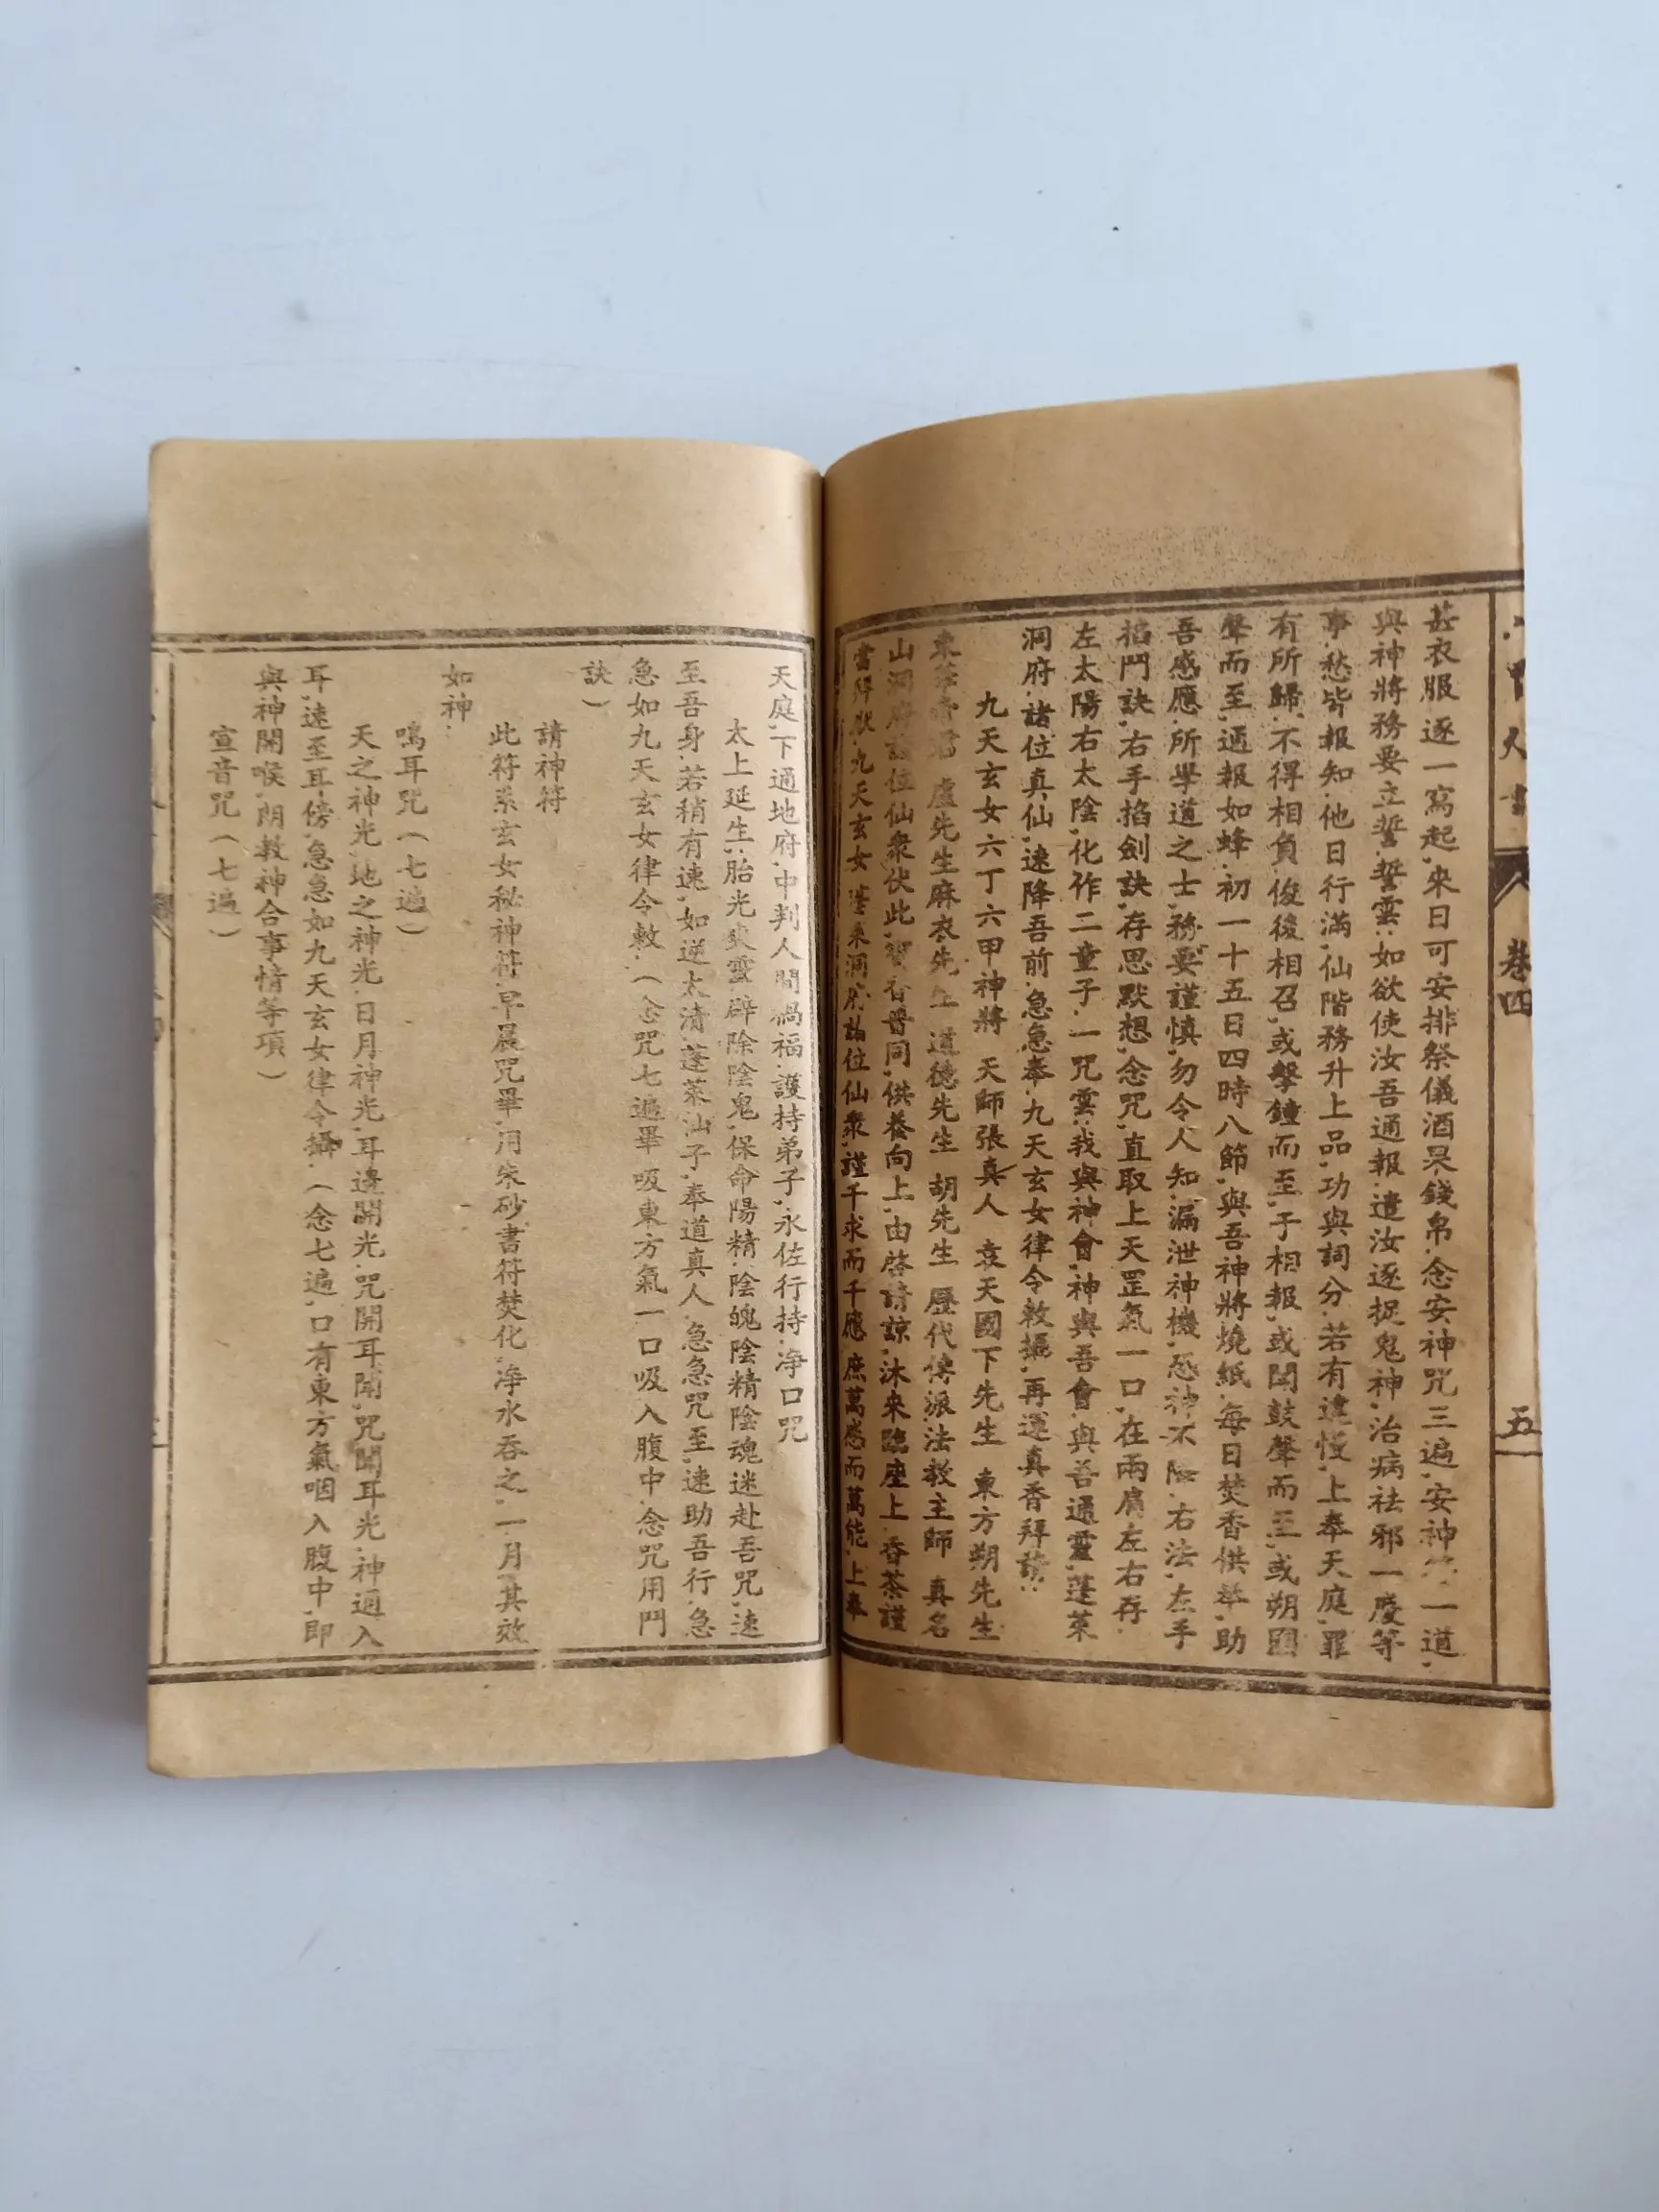 天書 卷四 五
甚衣服逐一寫起來日可安排祭儀酒果錢帛念安神咒三遍安神符一道
與神將務要立誓誓雲如欲使汝吾通報遣汝逐捉鬼神治病祛邪一慶等
事愁皆報知他日行滿仙階務升上品功與詞分若有違慢上奉天庭罪
有所歸不得相負俊後相召或擊鐘而至于相報或聞鼓聲而至或朔
聲而至通報如蜂初一十五日四時八節與吾神將燒紙每日焚香供奉助
吾感應所學道之士務要謹慎勿令人知漏泄神機恐神不降右法左手
掐鬥訣右手掐劍訣存思默想念咒直取上天罡氣一口在兩肩左右存
左太陽右太陰化作二童子一咒雲我與神會神與吾會與吾通靈蓬萊
洞府諸位真仙速降吾前急急奉九天玄女律令敕攝再運真香拜請
九天玄女六丁六甲神將 天師張真人 袁天國下先生 東方朔先生
東華帝君 盧先生麻衣先生 道德先生 胡先生 歷代傳派法教主師 真名
山洞府諸位仙眾伏此寶香普同供養向上由啓請諒沐來臨座上香茶謹
當拜獻九天玄女蓬來洞府諸位仙眾謹千求而千應庶萬感而萬能上奉
天庭下通地府中判人間禍福護持弟子永佐行持淨口咒
太上延生胎光爽靈辟除陰鬼保命陽精陰魄陰精陰魂迷赴吾咒速
至吾身若稍有速如逆太清蓬萊汕子奉道真人急急咒至速助吾行急
急如九天玄女律令敕（念咒七遍畢吸東方氣一口吸入腹中念咒用鬥
訣）
請神符
此符系玄女秘神符早晨咒畢用朱砂書符焚化淨水吞之一月其效
如神
鳴耳咒（七遍）
天之神光地之神光日月神光耳邊開光咒開耳開咒聞耳光神通入
耳速至耳傍急急如九天玄女律令攝（念七遍口有東方氣咽入腹中即
與神開喉朗教神合事情等項）
宣音咒（七遍）